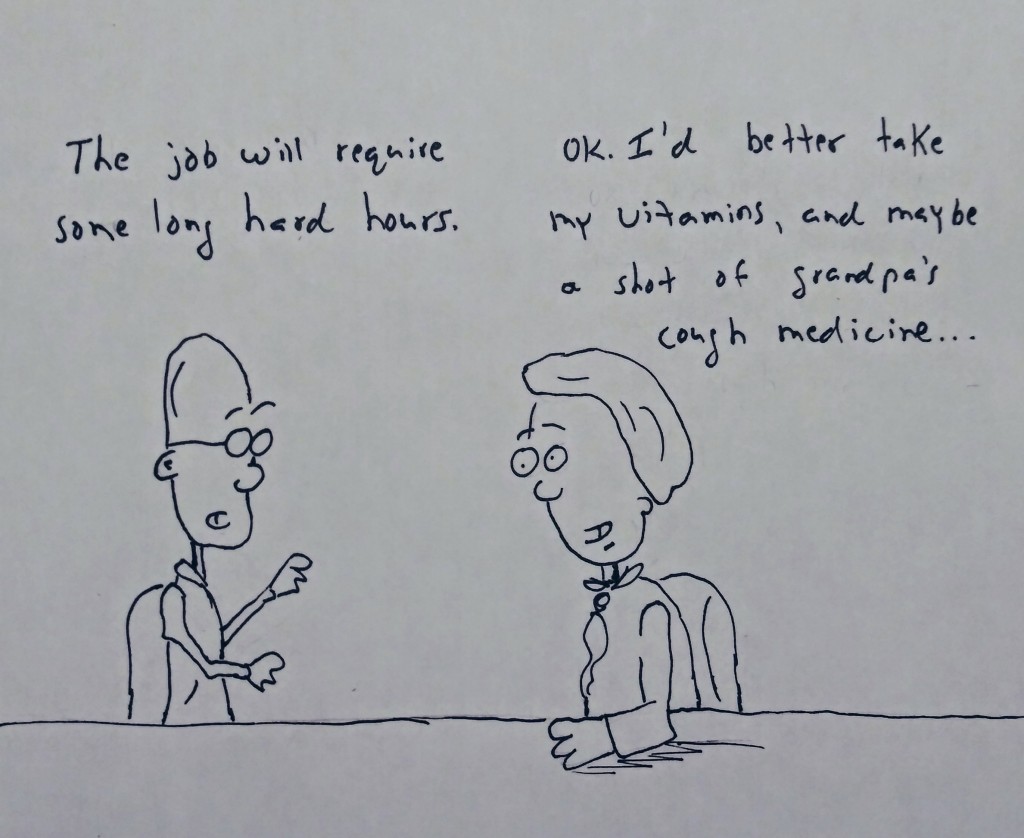 The job will require
some long hard hours.
OK. I'd better take
my vitamins, and maybe
a shot of grandpa's
cough medicine...